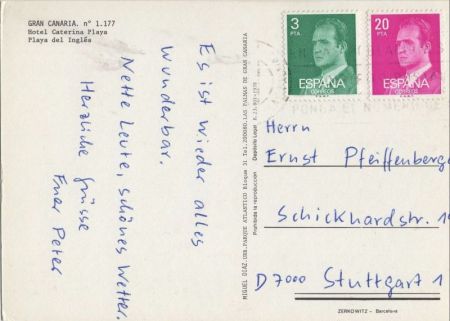 GRAN CANARIA. nº 1.177
Hotel Caterina Playa
Playa del Inglés
Es ist wieder alles
wunderbar.
Nette Leute, schönes Wetter.
Herzliche Grüsse
Euer Peter
MIGUEL DIAZ. PARQUE ATLANTICO Bloque 31 LAS PALMAS DE GRAN CANARIA
Prohibida la reproducción
Depósito Legal
3
PTA
ESPAÑA
CORREOS
20
PTA
ESPAÑA
CORREOS
Herrn
Ernst Pfeiffenberge
Schickhardstr.
D 7000 Stuttgart 1
ZERKOWITZ - Barcelona